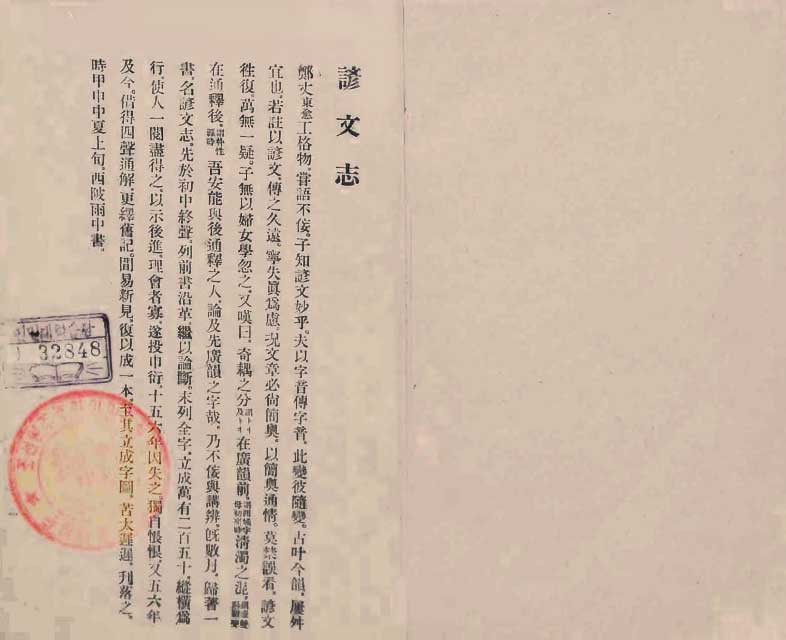 諺文志
鄭丈東愈工格物嘗語不侫子知諺文妙乎夫以字音傳字音此變彼隨變古叶今韻屢舛
宜也若註以諺文傳之久遠寧失眞爲慮况文章必尙簡奧以簡奧通情莫禁誤看諺文
徃復萬無一疑子無以婦女學忽之又嘆曰奇耦之分在廣韻前淸濁之混
在通釋後吾安能與後通釋之人論及先廣韻之字哉乃不侫與講辨旣數月歸著一
書名諺文志先於初中終聲列前書沿革繼以論斷末列全字立成萬有二百五十縱橫爲
行使人一閱盡得之以示後進理會者寡遂投巾衍十五六年因失之獨自悵恨又五六年
及今借得四聲通解更繹舊記間易新見復以成一本至其立成字圖苦太遲遲刋落之
時甲申中夏上旬西陂雨中書
32848